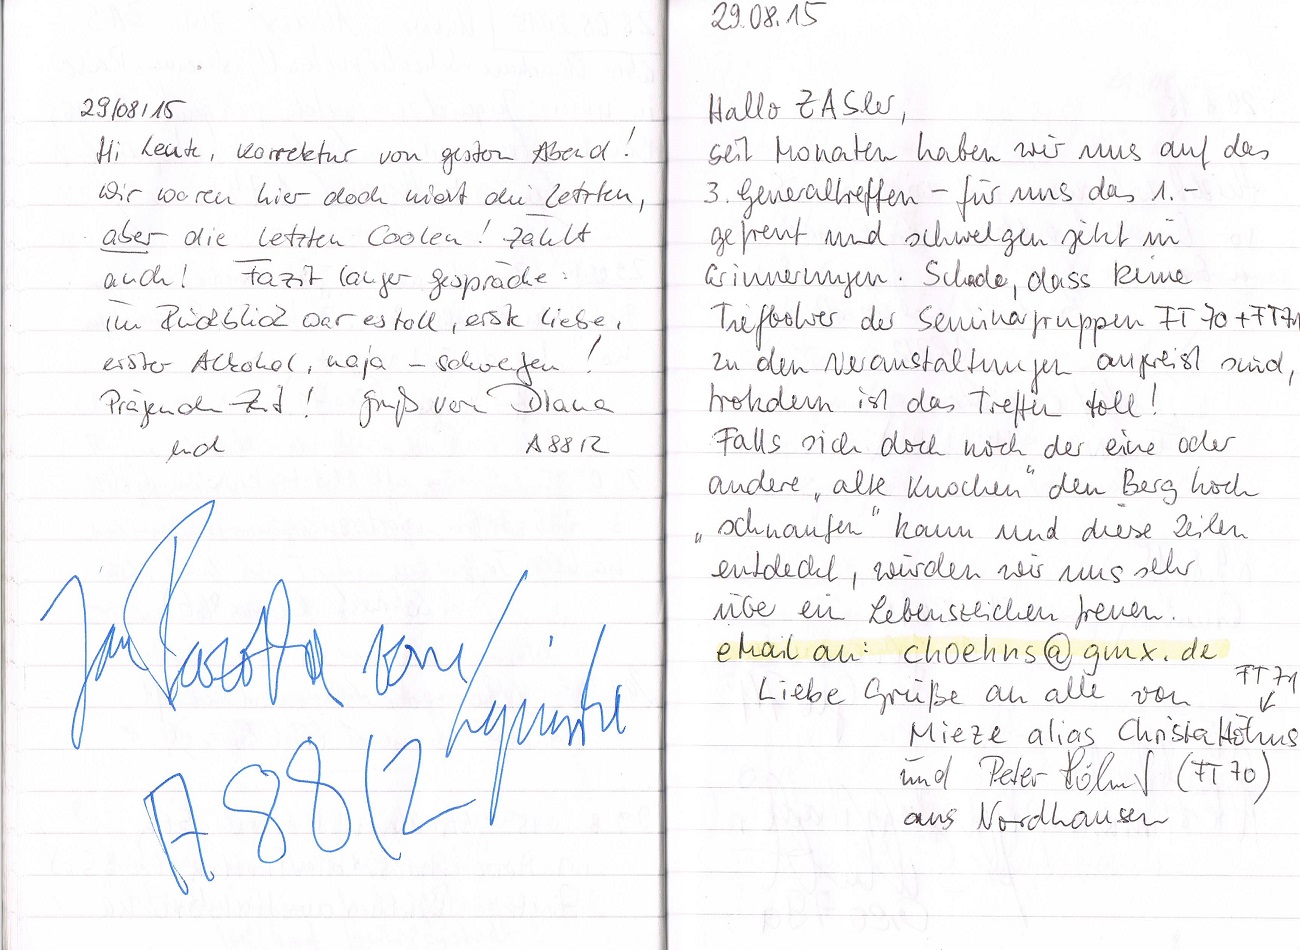 29/08/15
Hi Leute, Korrektur von gestern Abend!
wir waren hier doch nicht die letzten,
aber die letzten Coolen! Zählt
auch! Fazit langer Gespräche:
im Rückblick war es toll, erste Liebe,
erster Alkohol, naja – schweigen!
Prägende Zeit! Gruß von Diana
und A88/2
Jan
A88/2
29.08.15
Hallo ZASler,
seit Monaten haben wir uns auf das
3. Generaltreffen – für uns das 1. –
gefreut und schwelgen jetzt in
Erinnerungen. Schade, dass keine
Treffpulver der Seminargruppen FT70+FT71
zu den Veranstaltungen angereist sind,
trotzdem ist das Treffen toll!
Falls sich doch noch der eine oder
andere „alte Knochen" den Berg hoch
„schnaufen" kann und diese Zeilen
entdeckt, würden wir uns sehr
über ein Lebenszeichen freuen.
eMail an: choehns@gmx.de
Liebe Grüße an alle von FT71
Mieze alias Christa Höhns
und Peter Höhns (FT70)
aus Nordhausen